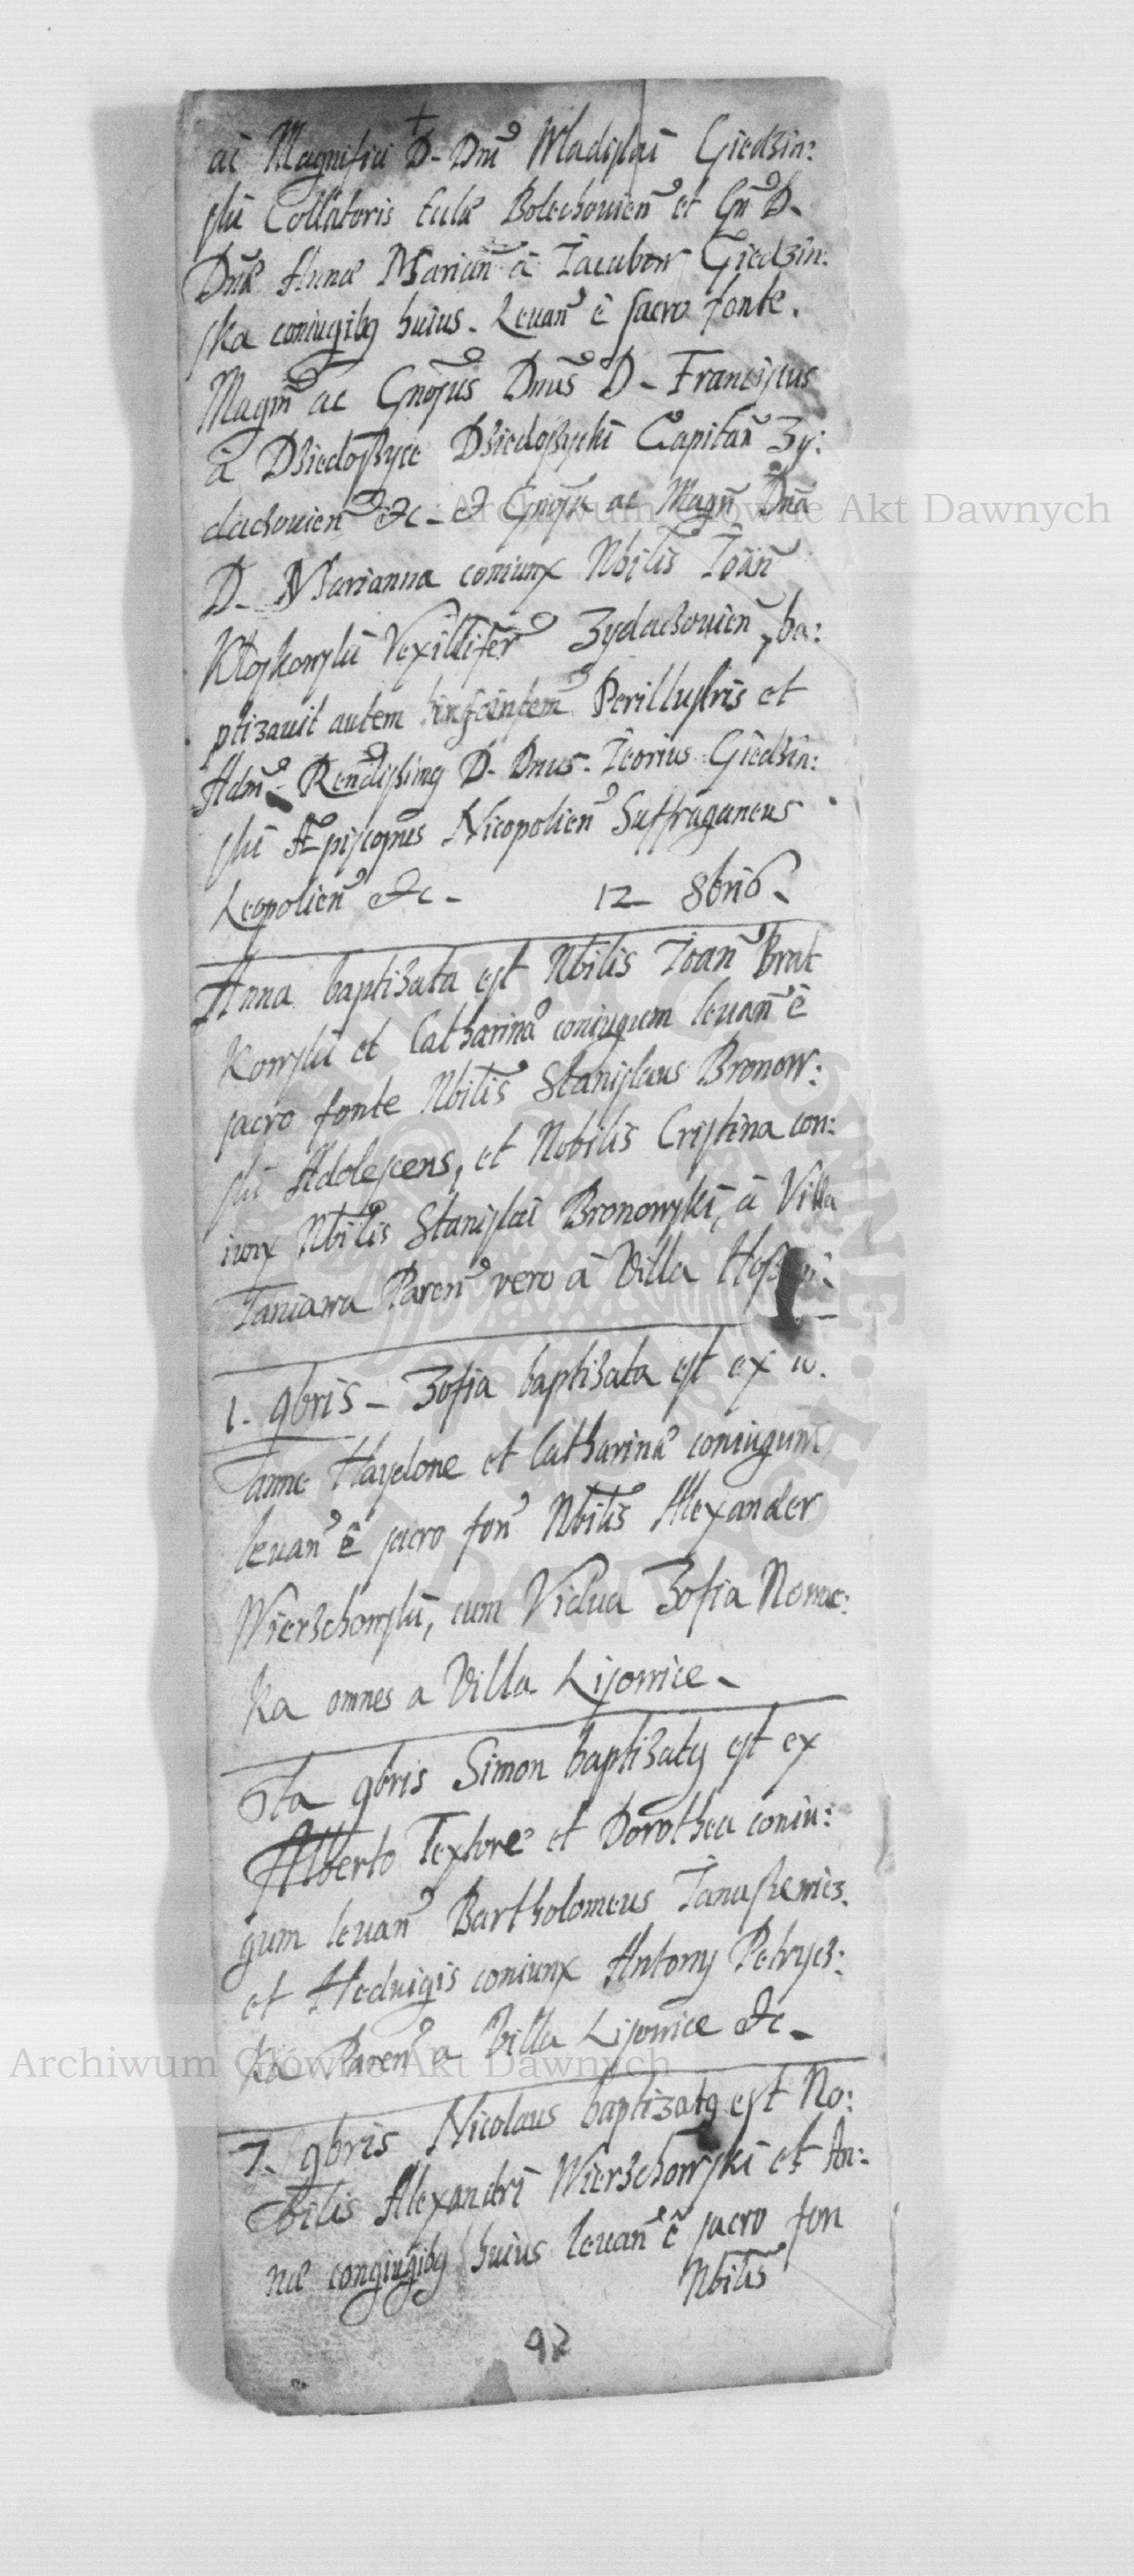 ac Magnifici D. Dni Wladislai Giedzin:
ski Collatoris Eccłæ Bolechouien et Gn D.
Dnæ Annæ Mariań à Jacubow Giedzin:
ska coniugibꝯ huius. Leuań è sacro fonte.
Magń ac Gnosus Dnus D. Franciscus
à Dziedoszyce Dziedoszycki Capitań Zy:
dachouień &c. et Gnosa ac Magń Dnā
D. Marianna coniunx Nbilis Ioań
Kłoskowski Vexillifer Zydachouień, ba:
ptizauit autem Perillustris et
Adm Rendissimꝯ D. Dnus. Giedzin:
ski Episcopus Nicopolień Suffraganeus
Leopolień &c. 12 8bris.
Anna baptizata est Nbilis Ioań Brat
kowski et Catharinæ coniugum leuań è
sacro fonte Nbilis Stanislaus Bronow:
ski Adolescens, et Nobilis Cristina con:
iunx Nbilis Stanislai Bronowski, à Villa
Taniawa Pareń vero à Villa
1. 9bris _ Zofia baptizata est ex io.
anne Haydone et Catharina coniugum
leuań è sacro foń Nbilis Alexander
Wierzchowski, cum Vidua Zofia Nowac:
ka omnes a Villa Lisowice _
6ta 9bris Simon baptizatꝯ est ex
Alberto Textore et Dorothea coniu:
gum leuań Bartholomeus Januszewicz
et Hedwigis coniunx Antony Petrycz:
ka Pareń a Villa Lisowice &c _
7. 9bris Nicolaus baptizatꝯ est No:
bilis Alexandri Wierzchowski et An:
næ congiugibꝯ huius leuań è sacro fon
Nbilis
92
Archiwum Główne Akt Dawnych
Archiwum Główne Akt Dawnych